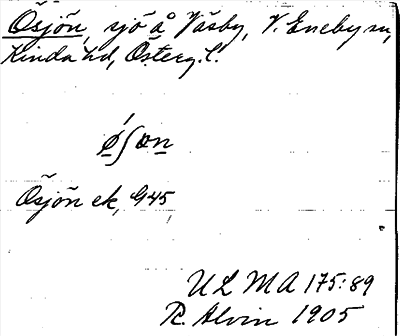 Ösjön, sjö å Väsby, V. Eneby sn,
Kinda hd, Österg. l.
ǿʃɷn
Ösjön ek, G45
ULMA 175:89
R. Alvin 1905